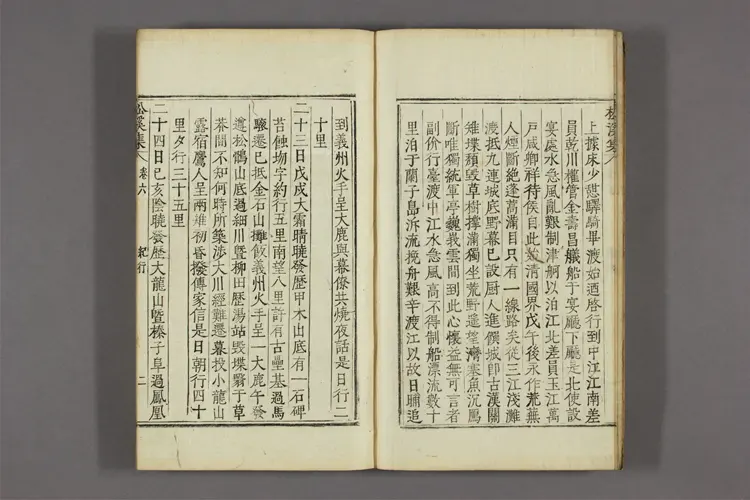 松溪集
上據床少憩驛騎畢渡始迺啓行到中江江南差
員乾川權管金壽昌艤船于宴廳下廳是北使設
宴處水急風亂艱制津舸以泊江北差員玉江萬
戶咸卿祥待候自此始淸國界戊午後永作荒蕪
人煙斷絶蓬蒿滿目只有一線路矣從三江淺灘
渡抵九連城底野幕已設厨人進饌城卽古漢關
雉堞頹毀草樹撑滿獨坐荒野遥望灣塞魚沉鴈
斷唯獨統軍亭巍峩雲間到此心懷益無可言者
副价行臺渡中江水急風高不得制船漂流數十
里泊于蘭子島泝流挽舟艱辛渡江以故日晡追
到義州火手呈大鹿與幕僚共燒夜話是日行二
十里
二十三日戊戌大霜晴曉發歷甲木山底有一石碑
苔蝕 字約行五里南望八里許有古壘基過馬
驟遷已抵金石山攤飯義州火手呈一大鹿午發
遵松鶻山底過細川曁柳田歷湯站毀堞翳于草
莽間不知何時所築渉大川經難遷暮投小龍山
露宿鷹人呈兩雉初昏撥傳家信是日朝行四十
里夕行三十五里
二十四日己亥陰曉發歷大龍山曁榛子阜過鳳凰
松溪集
卷六
紀行
二